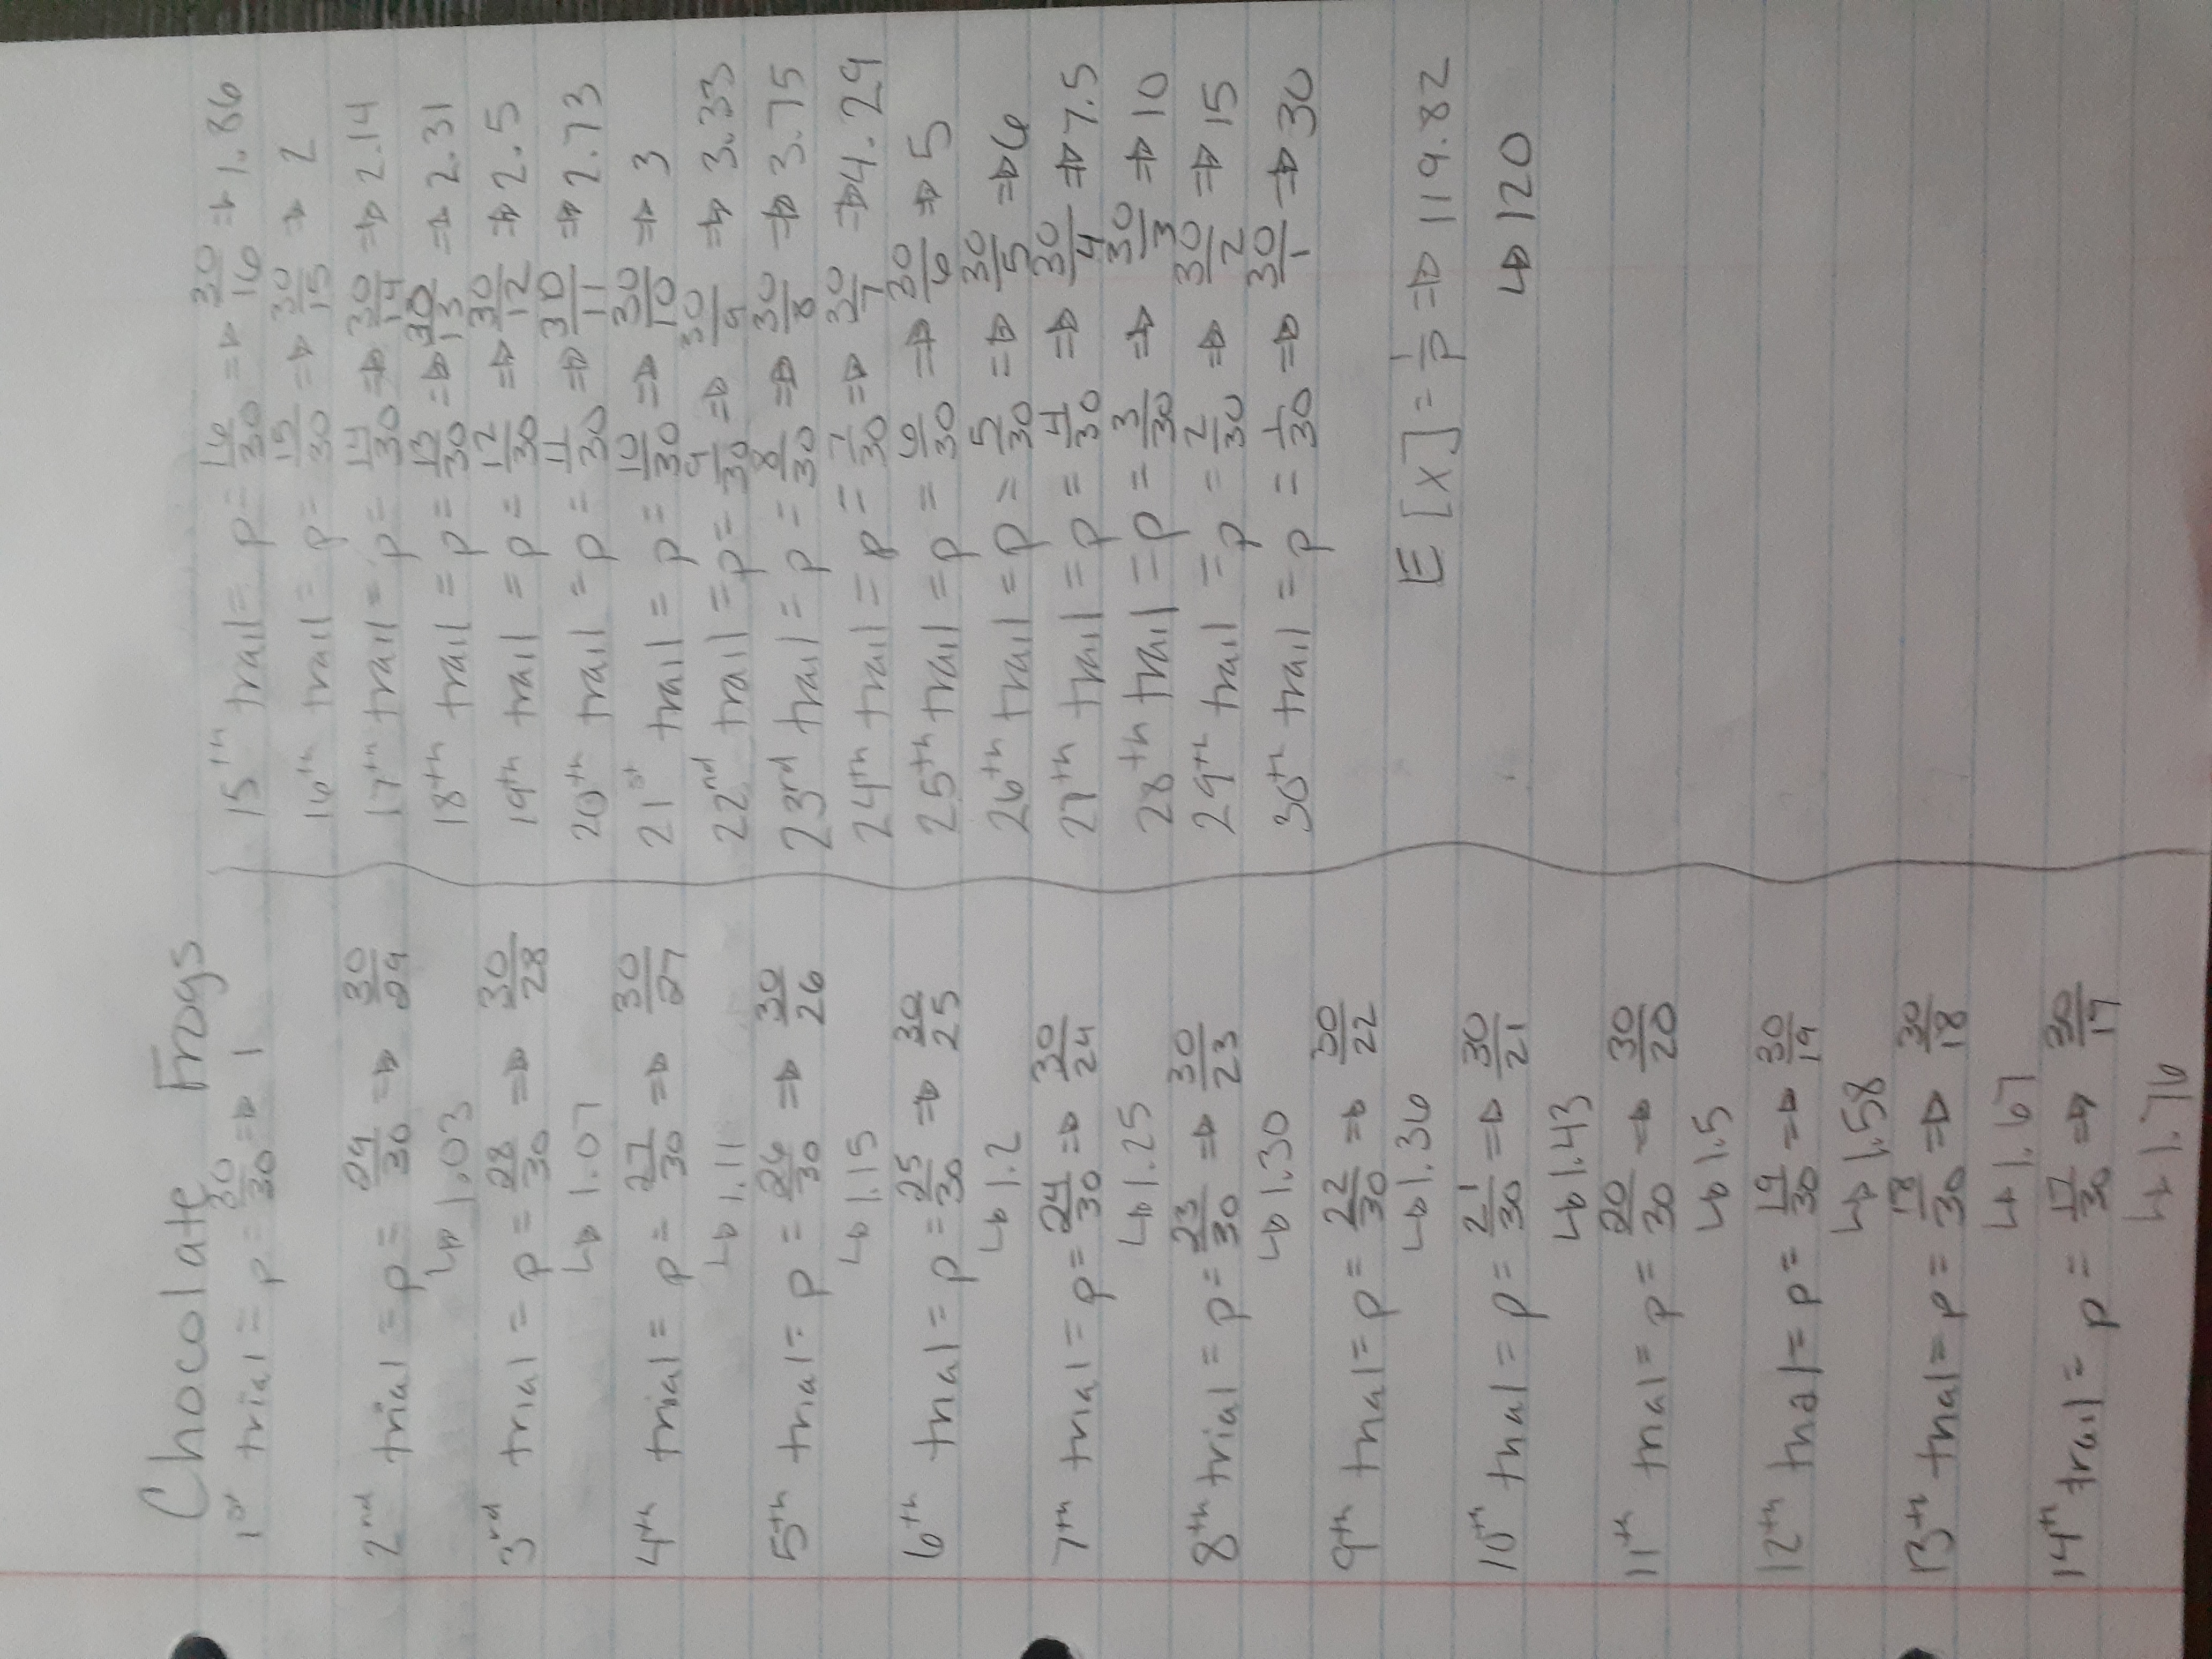 Chocolate Frogs
1st trial = p = 30/30 ⇒ 1
2nd trial = p = 29/30 ⇒ 30/29
↳ 1.03
3rd trial = p = 28/30 ⇒ 30/28
↳ 1.07
4th trial = p = 27/30 ⇒ 30/27
↳ 1.11
5th trial = p = 26/30 ⇒ 30/26
↳ 1.15
6th trial = p = 25/30 ⇒ 30/25
↳ 1.2
7th trial = p = 24/30 ⇒ 30/24
↳ 1.25
8th trial = p = 23/30 ⇒ 30/23
↳ 1.30
9th trial = p = 22/30 ⇒ 30/22
↳ 1.36
10th trial = p = 21/30 ⇒ 30/21
↳ 1.43
11th trial = p = 20/30 ⇒ 30/20
↳ 1.5
12th trial = p = 19/30 ⇒ 30/19
↳ 1.58
13th trial = p = 18/30 ⇒ 30/18
↳ 1.67
14th trail = p = 17/30 ⇒ 30/17
↳ 1.76
15th trail = p = 16/30 ⇒ 30/16 ⇒ 1.86
16th trail = p = 15/30 ⇒ 30/15 ⇒ 2
17th trail = p = 14/30 ⇒ 30/14 ⇒ 2.14
18th trail = p = 13/30 ⇒ 30/13 ⇒ 2.31
19th trail = p = 12/30 ⇒ 30/12 ⇒ 2.5
20th trail = p = 11/30 ⇒ 30/11 ⇒ 2.73
21st trail = p = 10/30 ⇒ 30/10 ⇒ 3
22nd trail = p = 9/30 ⇒ 30/9 ⇒ 3.33
23rd trail = p = 8/30 ⇒ 30/8 ⇒ 3.75
24th trail = p = 7/30 ⇒ 30/7 ⇒ 4.29
25th trail = p = 6/30 ⇒ 30/6 ⇒ 5
26th trail = p = 5/30 ⇒ 30/5 ⇒ 6
27th trail = p = 4/30 ⇒ 30/4 ⇒ 7.5
28th trail = p = 3/30 ⇒ 30/3 ⇒ 10
29th trail = p = 2/30 ⇒ 30/2 ⇒ 15
30th trail = p = 1/30 ⇒ 30/1 ⇒ 30
E[X] = 1/p ⇒ 119.82
↳ 120